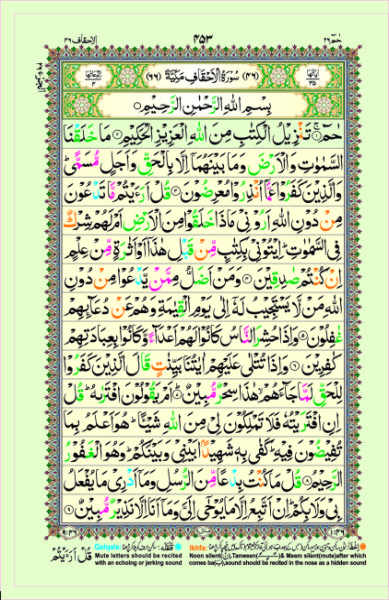 الاحقاف ٤٦ ٤٥٣ حٰمٓ ٢٦
(٦٦) سُوْرَةُ الْاَحْقَافِ مَكِّيَّةٌ (٤٦)
بِسْمِ اللّٰهِ الرَّحْمٰنِ الرَّحِيْمِ
حٰمٓ ۚ تَنْزِيْلُ الْكِتٰبِ مِنَ اللّٰهِ الْعَزِيْزِ الْحَكِيْمِ مَا خَلَقْنَا
السَّمٰوٰتِ وَالْاَرْضَ وَمَا بَيْنَهُمَاۤ اِلَّا بِالْحَقِّ وَاَجَلٍ مُّسَمًّى ؕ
وَالَّذِيْنَ كَفَرُوْا عَمَّاۤ اُنْذِرُوْا مُعْرِضُوْنَ قُلْ اَرَءَيْتُمْ مَّا تَدْعُوْنَ
مِنْ دُوْنِ اللّٰهِ اَرُوْنِيْ مَاذَا خَلَقُوْا مِنَ الْاَرْضِ اَمْ لَهُمْ شِرْكٌ
فِي السَّمٰوٰتِ ؕ اِيْتُوْنِيْ بِكِتٰبٍ مِّنْ قَبْلِ هٰذَاۤ اَوْ اَثٰرَةٍ مِّنْ عِلْمٍ
اِنْ كُنْتُمْ صٰدِقِيْنَ وَمَنْ اَضَلُّ مِمَّنْ يَّدْعُوْا مِنْ دُوْنِ
اللّٰهِ مَنْ لَّا يَسْتَجِيْبُ لَهٗۤ اِلٰى يَوْمِ الْقِيٰمَةِ وَهُمْ عَنْ دُعَآئِهِمْ
غٰفِلُوْنَ وَاِذَا حُشِرَ النَّاسُ كَانُوْا لَهُمْ اَعْدَآءً وَّكَانُوْا بِعِبَادَتِهِمْ
كٰفِرِيْنَ وَاِذَا تُتْلٰى عَلَيْهِمْ اٰيٰتُنَا بَيِّنٰتٍ قَالَ الَّذِيْنَ كَفَرُوْا
لِلْحَقِّ لَمَّا جَآءَهُمْ ۙ هٰذَا سِحْرٌ مُّبِيْنٌ اَمْ يَقُوْلُوْنَ افْتَرٰىهُ ؕ قُلْ
اِنِ افْتَرَيْتُهٗ فَلَا تَمْلِكُوْنَ لِيْ مِنَ اللّٰهِ شَيْـًٔا ؕ هُوَ اَعْلَمُ بِمَا
تُفِيْضُوْنَ فِيْهِ ؕ كَفٰى بِهٖ شَهِيْدًۢا بَيْنِيْ وَبَيْنَكُمْ ؕ وَهُوَ الْغَفُوْرُ
الرَّحِيْمُ قُلْ مَا كُنْتُ بِدْعًا مِّنَ الرُّسُلِ وَمَاۤ اَدْرِيْ مَا يُفْعَلُ
بِيْ وَلَا بِكُمْ ؕ اِنْ اَتَّبِعُ اِلَّا مَا يُوْحٰۤى اِلَيَّ وَمَاۤ اَنَا اِلَّا نَذِيْرٌ مُّبِيْنٌ
Qalqala:
Mute letters should be recited with an echoing or jerking sound
Ikhfa:
Noon silent(ن),Tanween(ً ٍ ٌ)& Meem silent(mute)after which comes ba(ب)sound should be recited in the nose as a hidden sound
قُلْ اَرَءَيْتُمْ